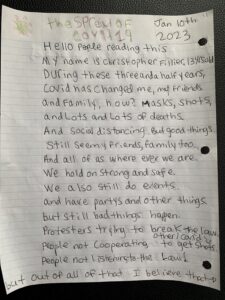 the spread of
covid 19
Jan 10th
2023
Hello People reading this
My name is Christopher
During these three and a half years,
Covid has changed me, my friends
and Family, how? Masks, shots,
and Lots and Lots of deaths.
And social distancing. But good things.
Still see my Friends, family too.
And all of us where ever we are.
We hold on strong and safe.
We also still do events.
and have partys and other things.
but still bad things happen.
Protesters trying to break the law
people not cooperating to get shots
People not listening to the Law!
but out of all of that I believe that